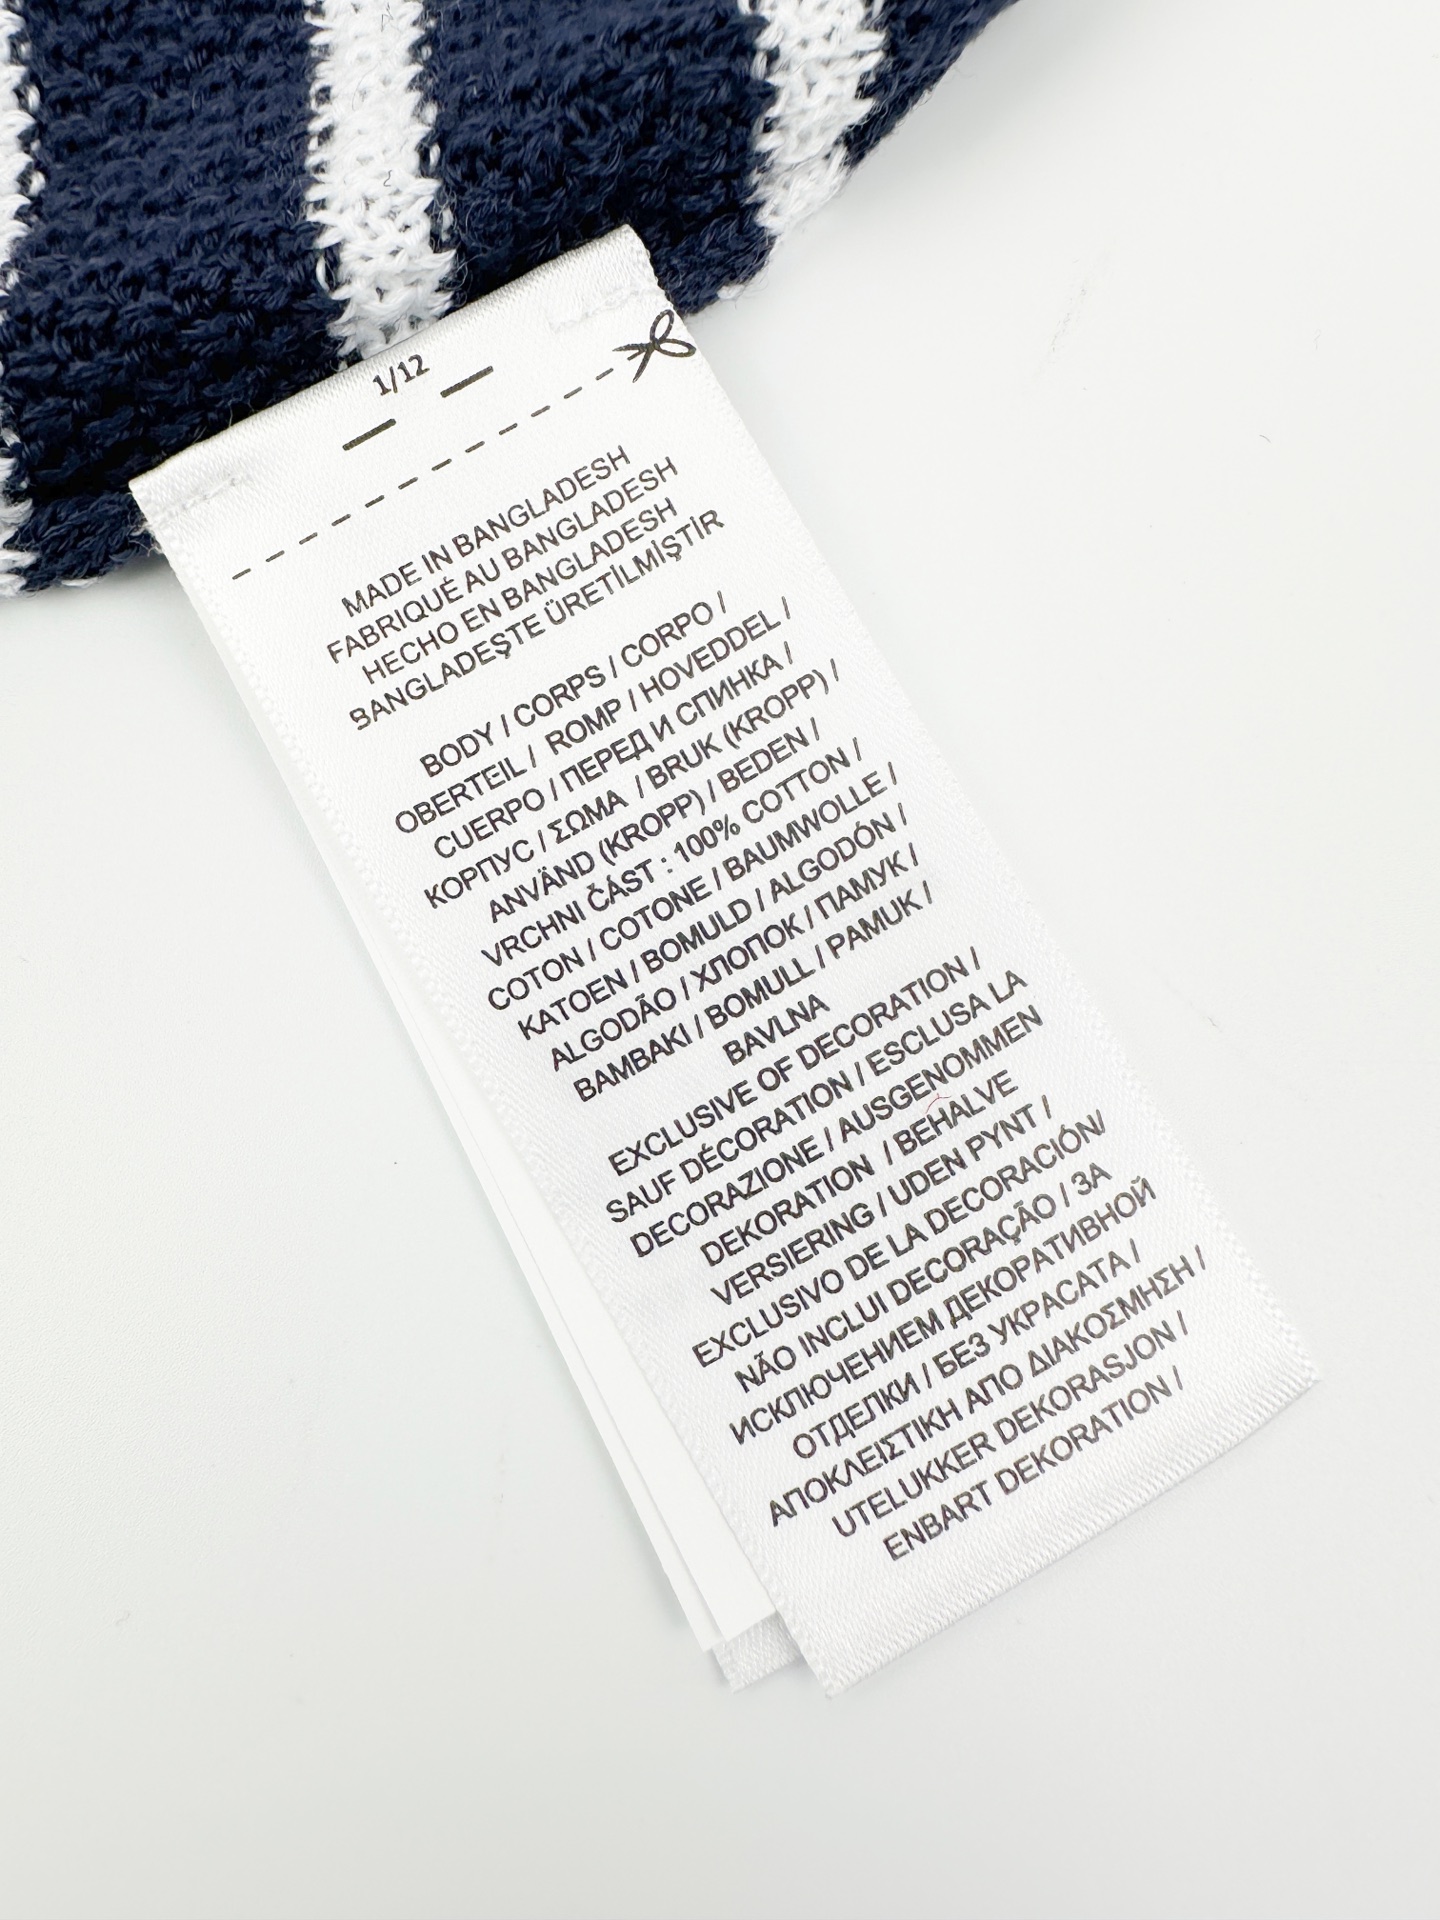 1/12
MADE IN BANGLADESH
FABRIQUÉ AU BANGLADESH
HECHO EN BANGLADESH
BANGLADEŞTE ÜRETİLMİŞTİR
BODY / CORPS / CORPO /
OBERTEIL / ROMP / HOVEDDEL /
CUERPO / ПЕРЕД И СПИНКА /
КОРПУС / ΣΩΜΑ / BRUK (KROPP) /
ANVÄND (KROPP) / BEDEN /
VRCHNI ČÁST : 100% COTTON /
COTON / COTONE / BAUMWOLLE /
KATOEN / BOMULD / ALGODÓN /
ALGODÃO / ХЛОПОК / ПАМУК /
BAMBAKI / BOMULL / PAMUK /
BAVLNA
EXCLUSIVE OF DECORATION /
SAUF DÉCORATION / ESCLUSA LA
DECORAZIONE / AUSGENOMMEN
DEKORATION / BEHALVE
VERSIERING / UDEN PYNT /
EXCLUSIVO DE LA DECORACIÓN/
NÃO INCLUI DECORAÇÃO / ЗА
ИСКЛЮЧЕНИЕМ ДЕКОРАТИВНОЙ
ОТДЕЛКИ / БЕЗ УКРАСАТА /
ΑΠΟΚΛΕΙΣΤΙΚΗ ΑΠΟ ΔΙΑΚΟΣΜΗΣΗ /
UTELUKKER DEKORASJON /
ENBART DEKORATION /